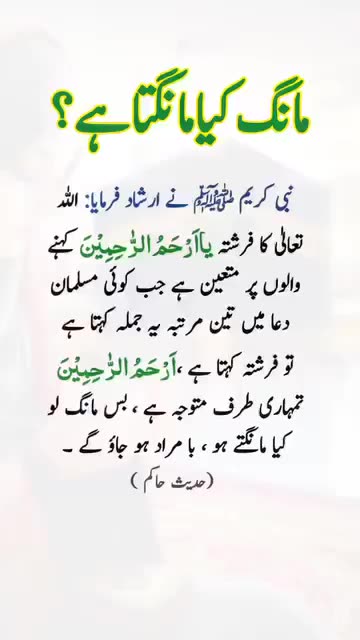 مانگ کیا مانگتا ہے؟
نبی کریم ﷺ نے ارشاد فرمایا: اللہ
تعالیٰ کا فرشتہ یَااَرْحَمُ الرّٰحِمِیْنَ کہنے
والوں پر متعین ہے جب کوئی مسلمان
دعا میں تین مرتبہ یہ جملہ کہتا ہے
تو فرشتہ کہتا ہے ،اَرْحَمُ الرّٰحِمِیْنَ
تمہاری طرف متوجہ ہے ، بس مانگ لو
کیا مانگتے ہو ، با مراد ہو جاؤ گے ۔
(حدیث حاکم )